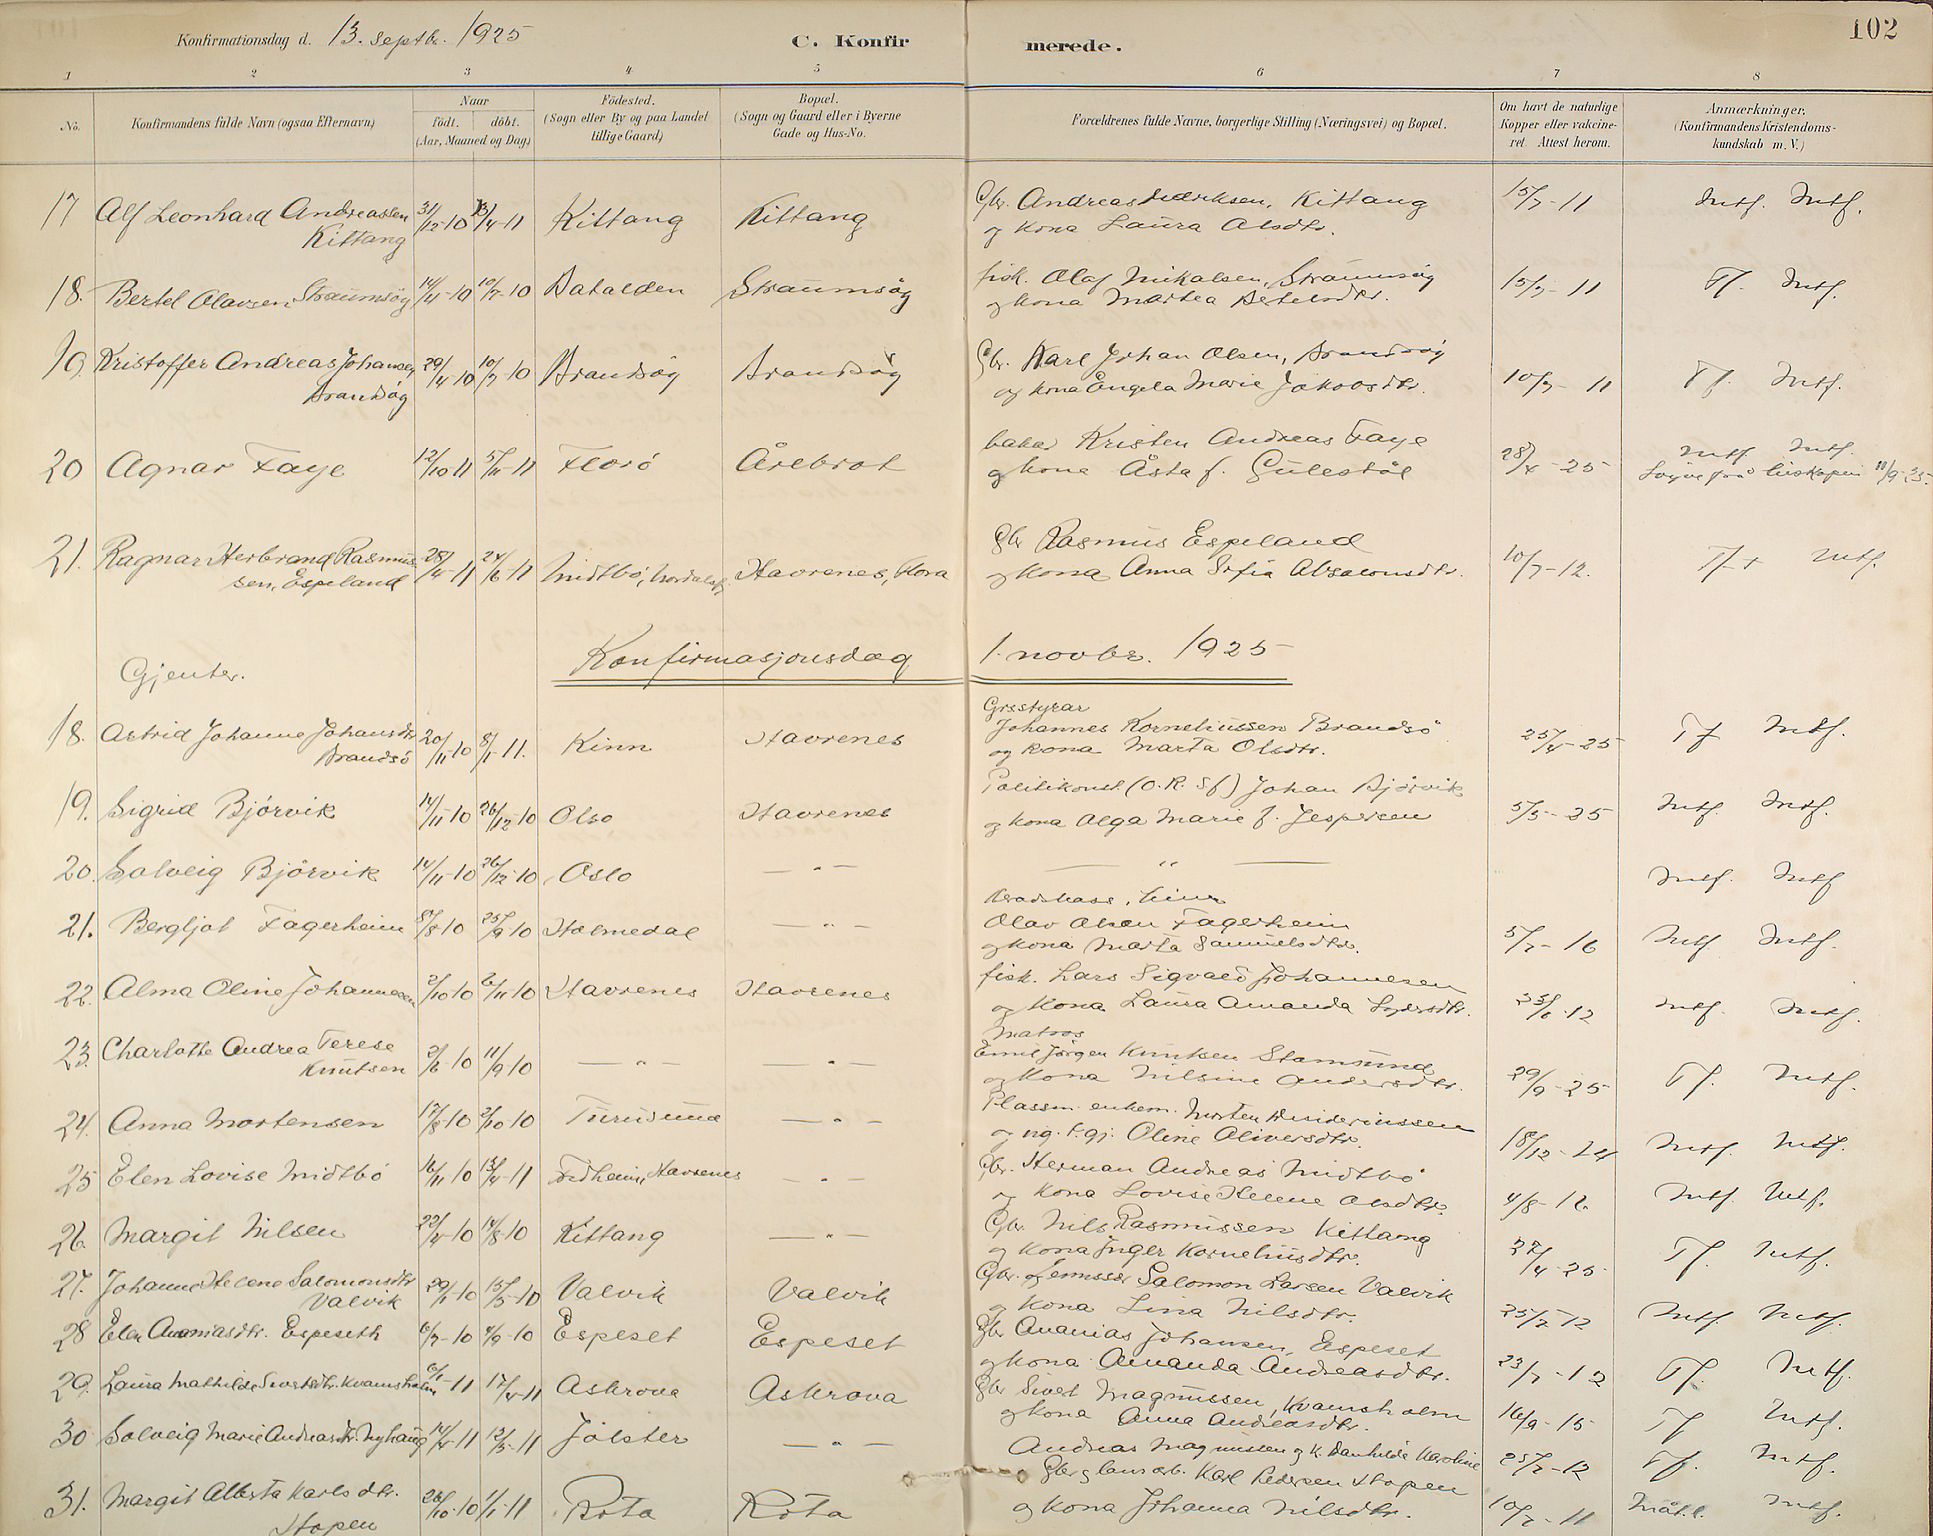 Konfirmationsdag d. 13. septbr. 1925
C. Konfirmerede.
102
1 2 3 4 5 6 7 8
No.
Konfirmandens fulde Navn (ogsaa Efternavn)
Naar
födt. döbt.
(Aar, Maaned og Dag)
Födested.
(Sogn eller By og paa Landet
tillige Gaard)
Bopæl.
(Sogn og Gaard eller i Byerne
Gade og Hus-No.
Forældrenes fulde Navne, borgerlige Stilling (Næringsvei) og Bopæl.
Om havt de naturlige
Kopper eller vakcine-
ret. Attest herom.
Anmærkninger.
(Konfirmandens Kristendoms-
kundskab m. V.)
17 Alf Leonhard Andreassen Kittang 31/12-10 13/4-11 Kittang Kittang
Gbr. Andreas Fredriksen, Kittang
og kona Laura Olsdtr. 15/7-11 Mtf. Mtf.
18. Bertel Olavsen Straumsøy 14/4-10 10/7-10 Batalden Straumsøy
fisk. Olaf Mikalsen, Straumsøy
og kona Martea Bertelsdtr. 15/7-11 Tf. Mtf.
19. Kristoffer Andreas Johansen Brandsøy 29/4-10 10/7-10 Brandsøy Brandsøy
Gbr. Karl Johan Olsen, Brandsøy
og kona Engela Marie Jakobsdtr. 10/7-11 Tf. Mtf.
20 Agnar Faye 12/10 11 5/11-11 Florö Årebrot
bakar Kristen Andreas Faye
og kona Åsta f. Gulestöl 28/4-25 Mtf. Mtf.
Løyve frå biskopen 11/9-25.
21. Ragnar Herbrand Rasmussen, Espeland 28/4-11 24/6-11 Midtbö, Nordalsf. Havrenes, Flora
Gbr Rasmus Espeland
og kona Anna Sofia Absalonsdtr. 10/7-12. Tf+ Mtf.
Konfirmasjonsdag 1. novbr. 1925
Gjenter.
18. Astrid Johanne Johansdtr Brandsö 20/11-10 8/1-11. Kinn Havrenes
Grsstyrar
Johannes Korneliussen Brandsö
og kona Marta Olsdtr. 25/4-25 Tf Mtf.
19. Sigrid Bjórvik 14/11-10 26/12-10 Olso Havrenes
Politikonst (O.R. Sf) Johan Bjórvik
og kona Olga Marie f. Jespersen 5/5-25 Mtf. Mtf.
20. Solveig Bjórvik 14/11-10 26/12-10 Oslo — " — — " — Mtf. Mtf
21. Bergljot Fagerheim 8/8-10 25/9-10 Holmedal — " —
Olav Olsen Fagerheim
og kona Marta Samuelsdtr. 5/7-16 Mtf Mtf.
22. Alma Oline Johannesen 2/10-10 6/11-10 Havrenes Havrenes
fisk. Lars Sigvald Johannesen
og kona Laura Amanda 25/6-12 Mtf. Mtf.
23. Charlotte Andrea Terese Knutsen 2/6 10 11/9 10 — " — — " —
Matros
Emil Jörgen Knutsen Stamsund
og kona Nilsine Andersdtr. 29/9-25 Tf. Mtf.
24. Anna Mortensen 17/8-10 2/10-10 — " —
Plassm. enkem. Morten Desideriussen
og ug. t.gj. Oline Oliversdtr. 18/12-24 Mtf. Mtf.
25 Elen Lovise Midtbó 16/11-10 13/4-11 Fredheim, Havrenes — " —
Gbr. Herman Andreas Midtbó
og kona Lovise Helene Olsdtr. 4/8-12. Mtf. Mtf.
26. Margit Nilsen 22/4-10 14/8-10 Kittang — " —
Gbr. Nils Rasmussen Kittang
og kona Inger Korneliusdtr. 27/4-25 Tf. Mtf.
27. Johanne Helene Salomonsdtr Valvik 29/1-10 15/5-10 Valvik Valvik
Gbr. og lensmann Salomon Larsen Valvik
og kona Lina Nilsdtr. 25/7-12 Mtf. Mtf.
28 Elen Ananiasdtr. Espeseth 6/7-10 4/9-10 Espeset Espeset
Gbr Ananias Johansen, Espeset
og kona Amanda Andreasdtr. 23/7-12 Tf. Mtf.
29. Laura Mathilde Sivertsdtr. Kvamsholm 6/1-11 17/4-11 Askrova Askrova
Gbr Sivert Magnussen, Kvamsholm
og kona Anna Andreasdtr. 16/9-15 Tf Mtf.
30 Solveig Marie Andreasdtr. Myhaug 14/4-11 12/5-11 Jölster — " —
Andreas Magnussen og k. Danhilda Karoline 25/7-12 Tf. Mtf.
31. Margit Alberta Karlsdtr. Stopen 26/10-10 1/1-11 Rota Rota
Gbr og laus arb. Karl Pedersen Stopen
og kona Johanna Nilsdtr. 10/7-11 Måt.l. Mtf.